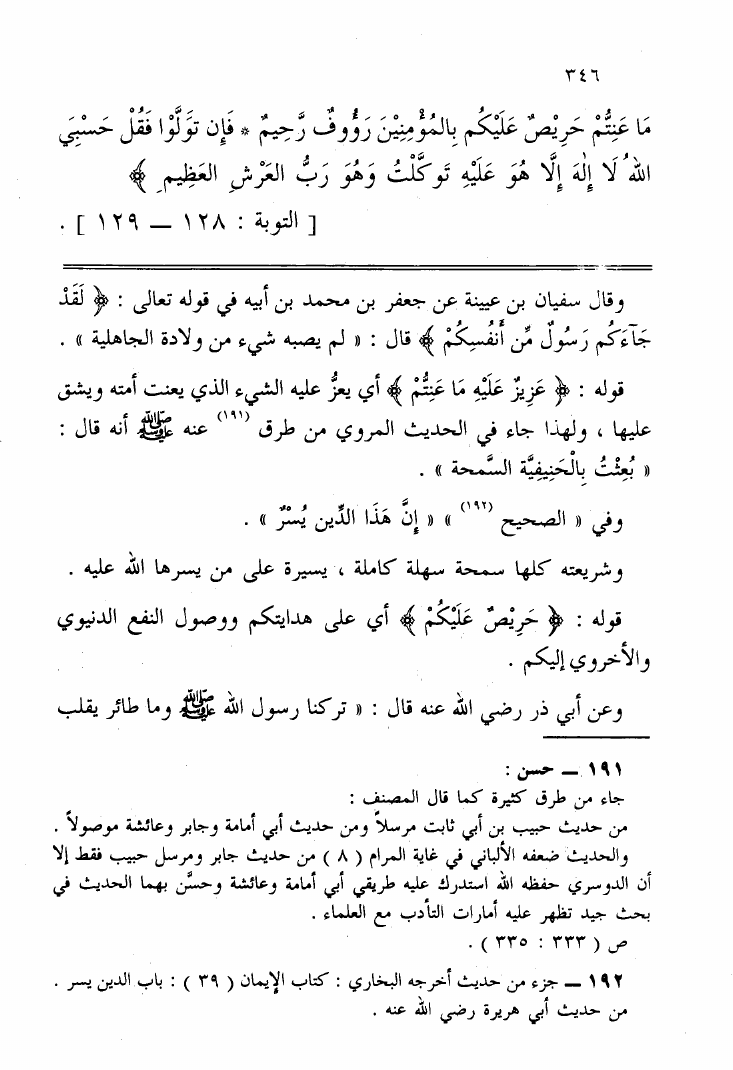 ٣٤٦
مَا عَنِتُّمْ حَرِيْصٌ عَلَيْكُم بِالمُؤْمِنِيْنَ رَؤُوفٌ رَّحِيمٌ * فَإِن تَوَلَّوْا فَقُلْ حَسْبِيَ
اللهُ لَا إِلٰهَ إِلَّا هُوَ عَلَيْهِ تَوَكَّلْتُ وَهُوَ رَبُّ العَرْشِ العَظِيمِ ﴾
[ التوبة : ١٢٨ ــ ١٢٩ ] .
وقال سفيان بن عيينة عن جعفر بن محمد بن أبيه في قوله تعالى : ﴿ لَقَدْ
جَآءَكُم رَسُولٌ مِّن أَنفُسِكُمْ ﴾ قال : « لم يصبه شيء من ولادة الجاهلية » .
قوله : ﴿ عَزِيزٌ عَلَيْهِ مَا عَنِتُّمْ ﴾ أي يعزُّ عليه الشيء الذي يعنت أمته ويشق
عليها ، ولهذا جاء في الحديث المروي من طرق (١٩١) عنه ﷺ أنه قال :
« بُعِثْتُ بِالْحَنِيفِيَّة السَّمحة » .
وفي « الصحيح (١٩٢) » « إِنَّ هَذَا الدِّين يُسْرٌ » .
وشريعته كلها سمحة سهلة كاملة ، يسيرة على من يسرها الله عليه .
قوله : ﴿ حَرِيْصٌ عَلَيْكُمْ ﴾ أي على هدايتكم ووصول النفع الدنيوي
والأخروي إليكم .
وعن أبي ذر رضي الله عنه قال : « تركنا رسول الله ﷺ وما طائر يقلب
١٩١ ــ حسن :
جاء من طرق كثيرة كما قال المصنف :
من حديث حبيب بن أبي ثابت مرسلاً ومن حديث أبي أمامة وجابر وعائشة موصولاً .
والحديث ضعفه الألباني في غاية المرام ( ٨ ) من حديث جابر ومرسل حبيب فقط إلا
أن الدوسري حفظه الله استدرك عليه طريقي أبي أمامة وعائشة وحسَّن بهما الحديث في
بحث جيد تظهر عليه أمارات التأدب مع العلماء .
ص ( ٣٣٣ : ٣٣٥ ) .
١٩٢ ــ جزء من حديث أخرجه البخاري : كتاب الإيمان ( ٣٩ ) : باب الدين يسر .
من حديث أبي هريرة رضي الله عنه .